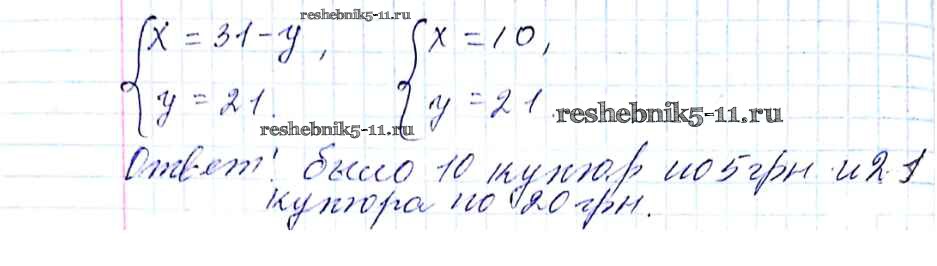 reshebnik5-11.ru
x = 31 - y, x = 10,
y = 21. y = 21.
reshebnik5-11.ru
reshebnik5-11.ru
Ответ: было 10 купюр по 5 грн и 21
купюра по 20 грн.